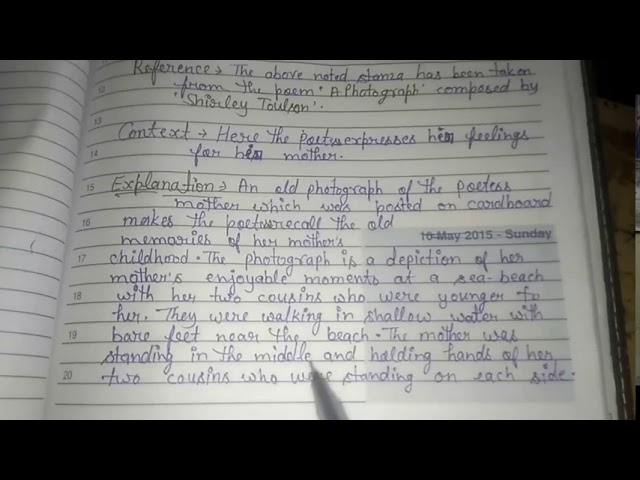 Reference → The above noted stanza has been taken
12
from the poem 'A Photograph' composed by
'Shirley Toulson'.
13
Context → Here the poetess expresses her feelings
14
for her mother.
15
Explanation → An old photograph of the poetess
mother which was posted on cardboard
16
makes the poetess recall the old
memories of her mother's
10 May 2015 - Sunday
17
childhood. The photograph is a depiction of her
mother's enjoyable moments at a sea-beach
18
with her two cousins who were younger to
her. They were walking in shallow water with
19
bare feet near the beach. The mother was
standing in the middle and holding hands of her
20
two cousins who were standing on each side.